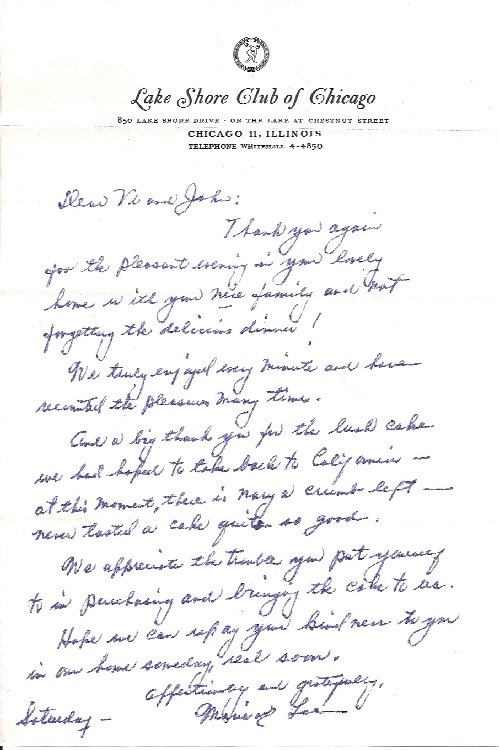 Lake Shore Club of Chicago
850 LAKE SHORE DRIVE · ON THE LAKE AT CHESTNUT STREET
CHICAGO 11, ILLINOIS
TELEPHONE WHITEHALL 4-4850
Dear Vi and John:
Thank you again
for the pleasant evening in your lovely
home with your nice family and not
forgetting the delicious dinner!
We truly enjoyed every minute and have
recounted the pleasures many times.
And a big thank you for the lush cake
we had hoped to take back to California —
at this moment, there is nary a crumb left —
never tasted a cake quite so good.
We appreciate the trouble you put yourself
to in purchasing and bringing the cake to us.
Hope we can repay your kindness to you
in our home someday real soon.
Affectionately and gratefully,
Saturday — Marie Lee